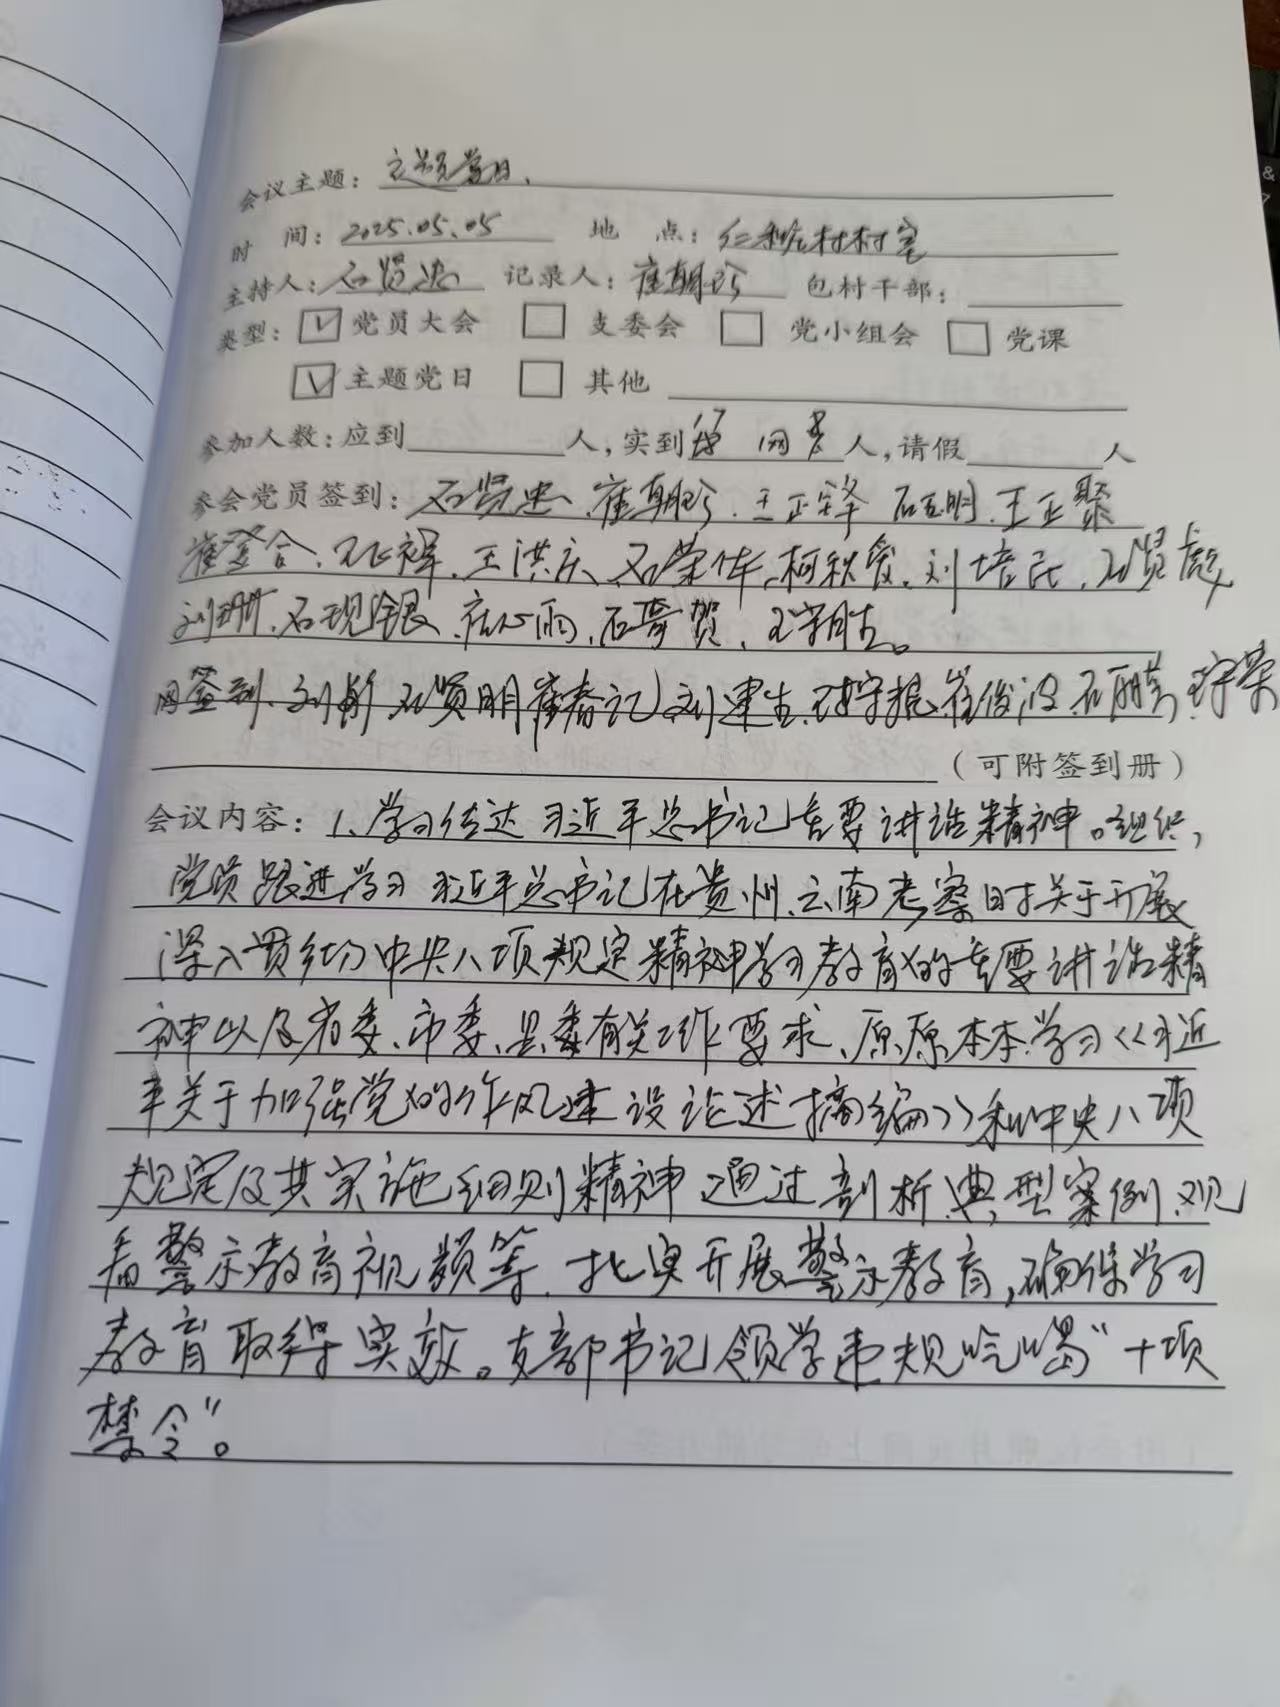 会议主题：主题党日、
时 间：2025.05.05 地 点：仁和庄村村室
主持人：石贤忠 记录人：崔朝珍 包村干部：
类型：☑ 党员大会 □ 支委会 □ 党小组会 □ 党课
☑ 主题党日 □ 其他
参加人数：应到 人，实到 17 网 8 人，请假 人
参会党员签到：石贤忠、崔朝珍、王正锋 石玉明、王正聚
崔登合、 王洪庆、石荣华、柯秋爱、刘培民、石贤彪
刘珊、石现银、 心雨、石奇贺、 。
网签到、刘前 石贤明 崔春记、刘建生、 守根、崔俊波、石丽 守荣
（可附签到册）
会议内容：1、学习传达习近平总书记重要讲话精神。组织，
党员跟进学习 习近平总书记在贵州、云南考察时关于开展
深入贯彻中央八项规定精神学习教育的重要讲话精
神以及省委、市委、县委有关工作要求、原原本本学习《习近
平关于加强党的作风建设论述摘编》和中央八项
规定及其实施细则精神 通过剖析典型案例、观
看警示教育视频等、扎实开展警示教育，确保学习
教育取得实效。支部书记领学违规吃喝"十项
禁令"。